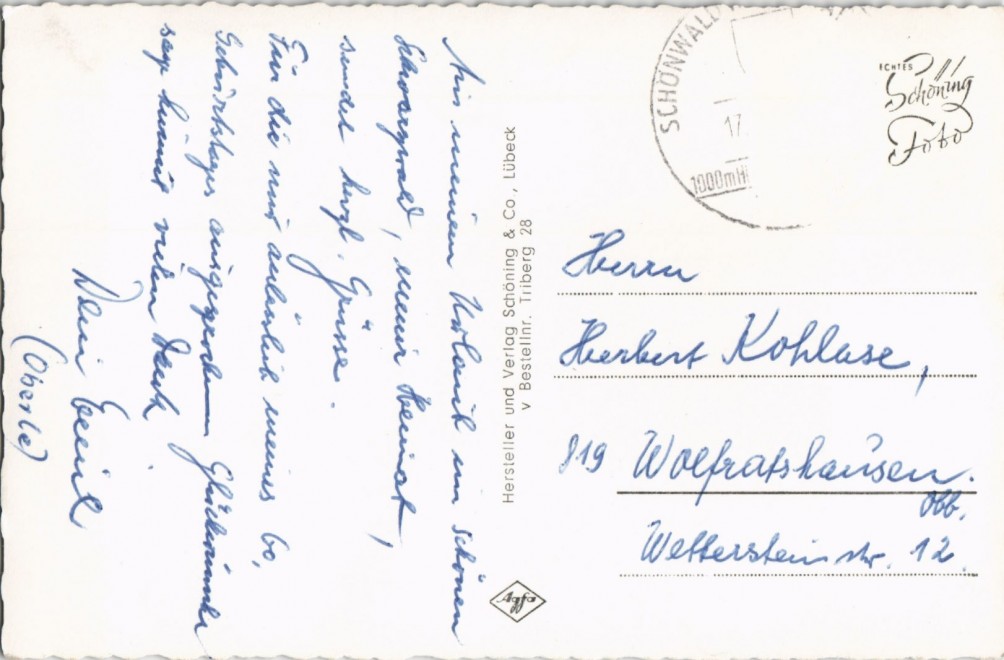 Aus meinem Urlaub im schönen
Schwarzwald, meine Heimat,
sendet herzl. Grüsse.
Für die mir anlässlich meines 60.
Geburtstages ausgesprochenen Glückwünsche
sage hiermit vielen Dank
Dein Emil
(Oberle)
Hersteller und Verlag Schöning & Co., Lübeck
v Bestellnr. Triberg 28
Agfa
SCHÖNWALD
17.
1000m
ECHTES
Schöning
Foto
Herrn
Herbert Kohlase,
819 Wolfratshausen.
Obb.
Wettersteinstr. 12.